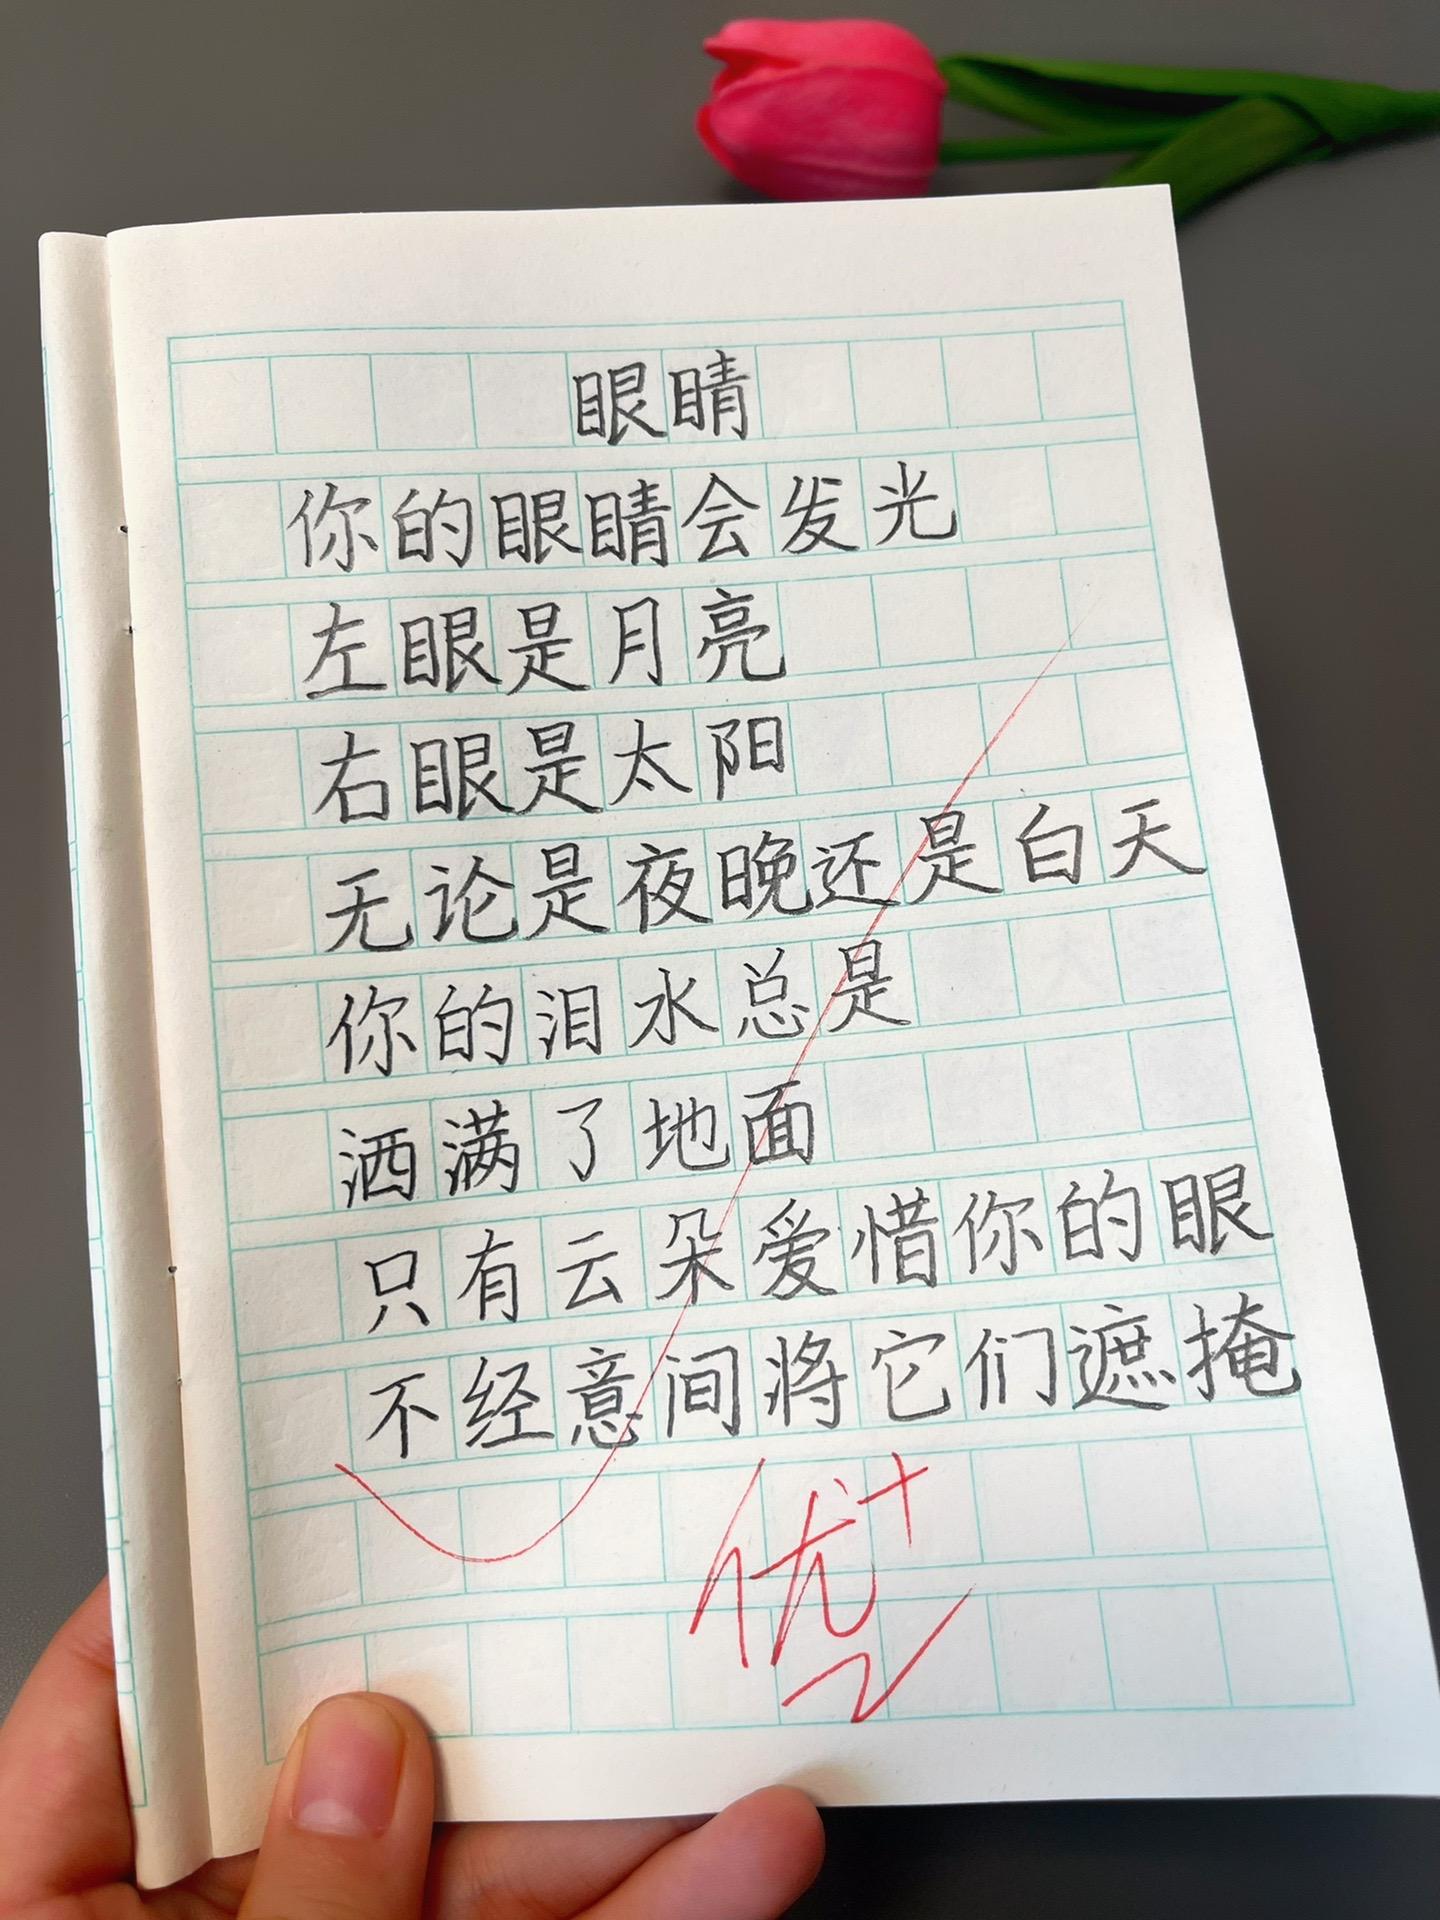 眼睛
你的眼睛会发光
左眼是月亮
右眼是太阳
无论是夜晚还是白天
你的泪水总是
洒满了地面
只有云朵爱惜你的眼
不经意间将它们遮掩
优+